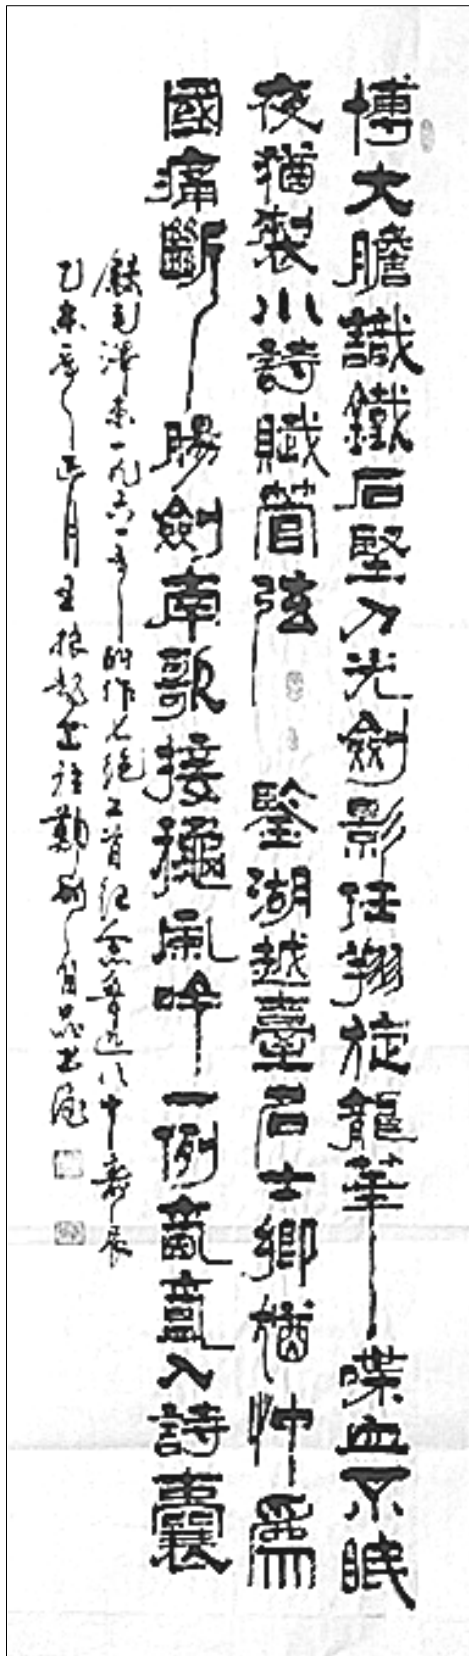 博大膽識鐵石堅刀光劍影任翔旋龍華喋血不眠
夜猶製小詩賦管弦 鑒湖越臺名士鄉忡為
國痛斷腸劍南歌接穐風吟一例氤氳入詩囊
錄毛澤東一九六一年的作七絕二首紀念魯迅八十壽辰
乙未年正月王根書於鄭州自品書